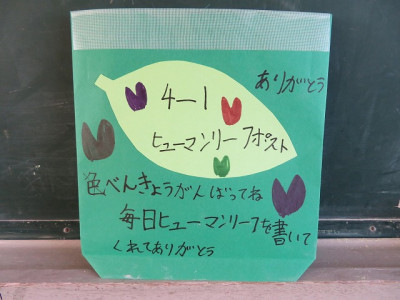 4-1
ありがとう
ヒューマンリーフポスト
色べんきょうがんばってね
毎日ヒューマンリーフを書いて
くれてありがとう